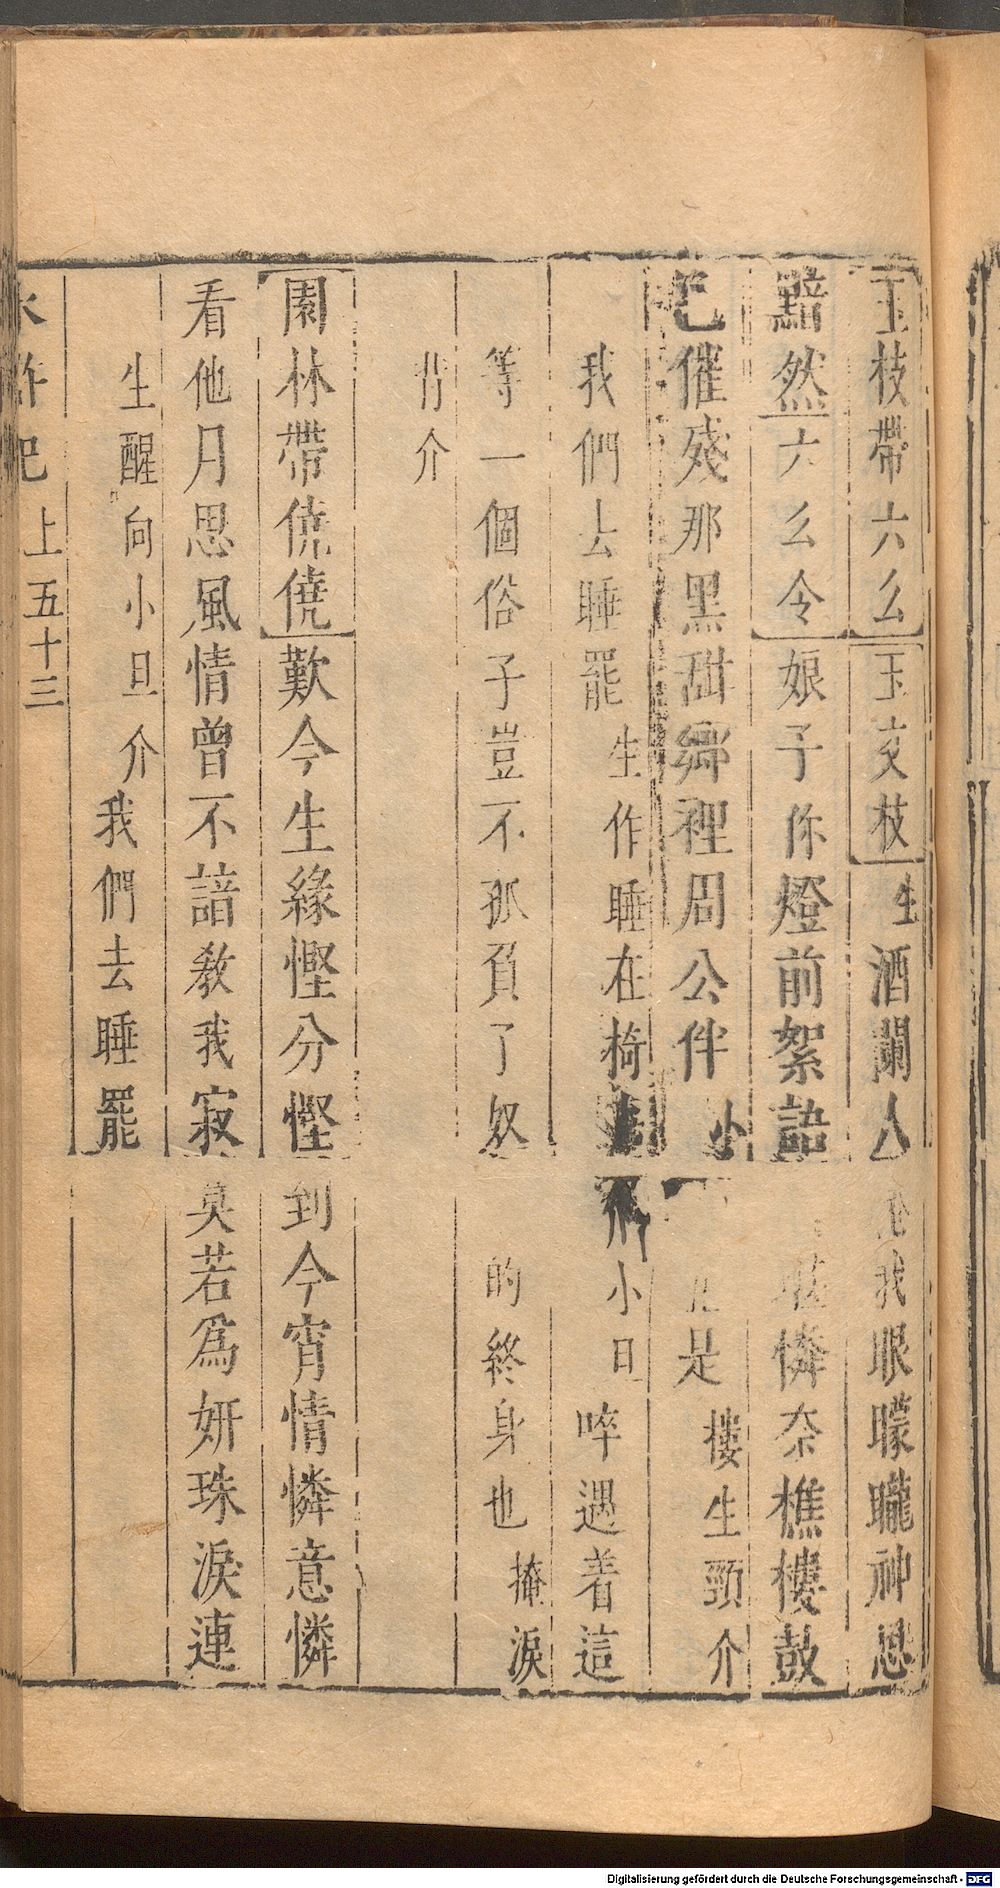 玉枝帶六么玉交枝生酒闌人　我眼矇矓神思
黯然六么令娘子你燈前絮語　憐奈樵樓鼓
已催殘那黑甜鄉裡周公伴小　是摟生頸介
我們去睡罷生作睡在椅　介小旦啐遇着這
等一個俗子豈不孤負了奴的終身也掩淚
背介
園林帶僥僥歎今生緣慳分慳到今宵情憐意憐
看他月思風情曾不諳教我寂寞若爲妍珠淚連
生醒向小旦介我們去睡罷
水滸記上五十三
Digitalisierung gefördert durch die Deutsche Forschungsgemeinschaft - DFG